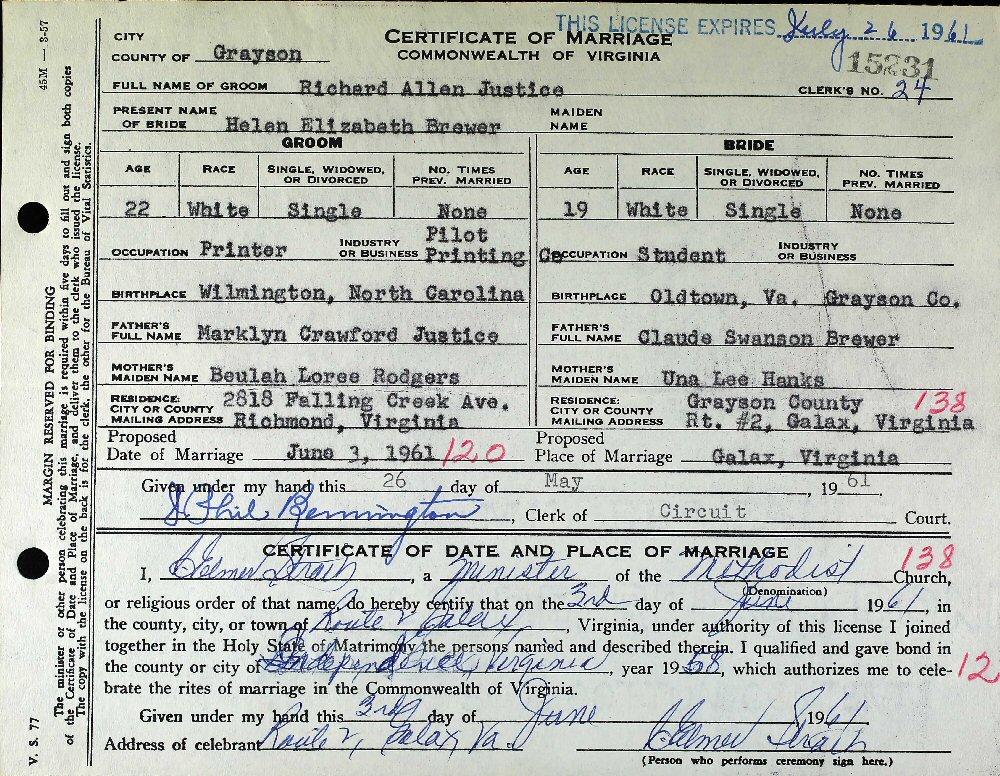 THIS LICENSE EXPIRES July 26 1961
CITY
COUNTY OF Grayson
CERTIFICATE OF MARRIAGE
COMMONWEALTH OF VIRGINIA
15231
CLERK'S NO. 24
FULL NAME OF GROOM Richard Allen Justice
PRESENT NAME OF BRIDE Helen Elizabeth Brewer MAIDEN NAME
GROOM BRIDE
AGE RACE SINGLE, WIDOWED, OR DIVORCED NO. TIMES PREV. MARRIED AGE RACE SINGLE, WIDOWED, OR DIVORCED NO. TIMES PREV. MARRIED
22 White Single None 19 White Single None
OCCUPATION Printer INDUSTRY OR BUSINESS Pilot Printing Co OCCUPATION Student INDUSTRY OR BUSINESS
BIRTHPLACE Wilmington, North Carolina BIRTHPLACE Oldtown, Va. Grayson Co.
FATHER'S FULL NAME Marklyn Crawford Justice FATHER'S FULL NAME Claude Swanson Brewer
MOTHER'S MAIDEN NAME Beulah Loree Rodgers MOTHER'S MAIDEN NAME Una Lee Hanks
RESIDENCE: 2818 Falling Creek Ave. RESIDENCE: Grayson County 138
CITY OR COUNTY MAILING ADDRESS Richmond, Virginia CITY OR COUNTY MAILING ADDRESS Rt. #2, Galax, Virginia
Proposed Date of Marriage June 3, 1961 120 Proposed Place of Marriage Galax, Virginia
Given under my hand this 26 day of May, 1961.
Phil Bennington, Clerk of Circuit Court.
CERTIFICATE OF DATE AND PLACE OF MARRIAGE 138
I, Elmer, a Minister of the Methodist Church,
(Denomination)
or religious order of that name, do hereby certify that on the 3rd day of June 1961, in
the county, city, or town of Route 2, Galax, Virginia, under authority of this license I joined
together in the Holy State of Matrimony the persons named and described therein. I qualified and gave bond in
the county or city of Independence, Virginia, year 1958, which authorizes me to cele- 12
brate the rites of marriage in the Commonwealth of Virginia.
Given under my hand this 3rd day of June 1961
Address of celebrant Route 2, Galax, Va. Elmer
(Person who performs ceremony sign here.)
45M — 3-57
MARGIN RESERVED FOR BINDING
The minister or other person celebrating this marriage is required within five days to fill out and sign both copies
of the Certificate of Date and Place of Marriage, and deliver them to the clerk who issued the license.
The copy with the license on the back is for the clerk, the other for the Bureau of Vital Statistics.
V. S. 77